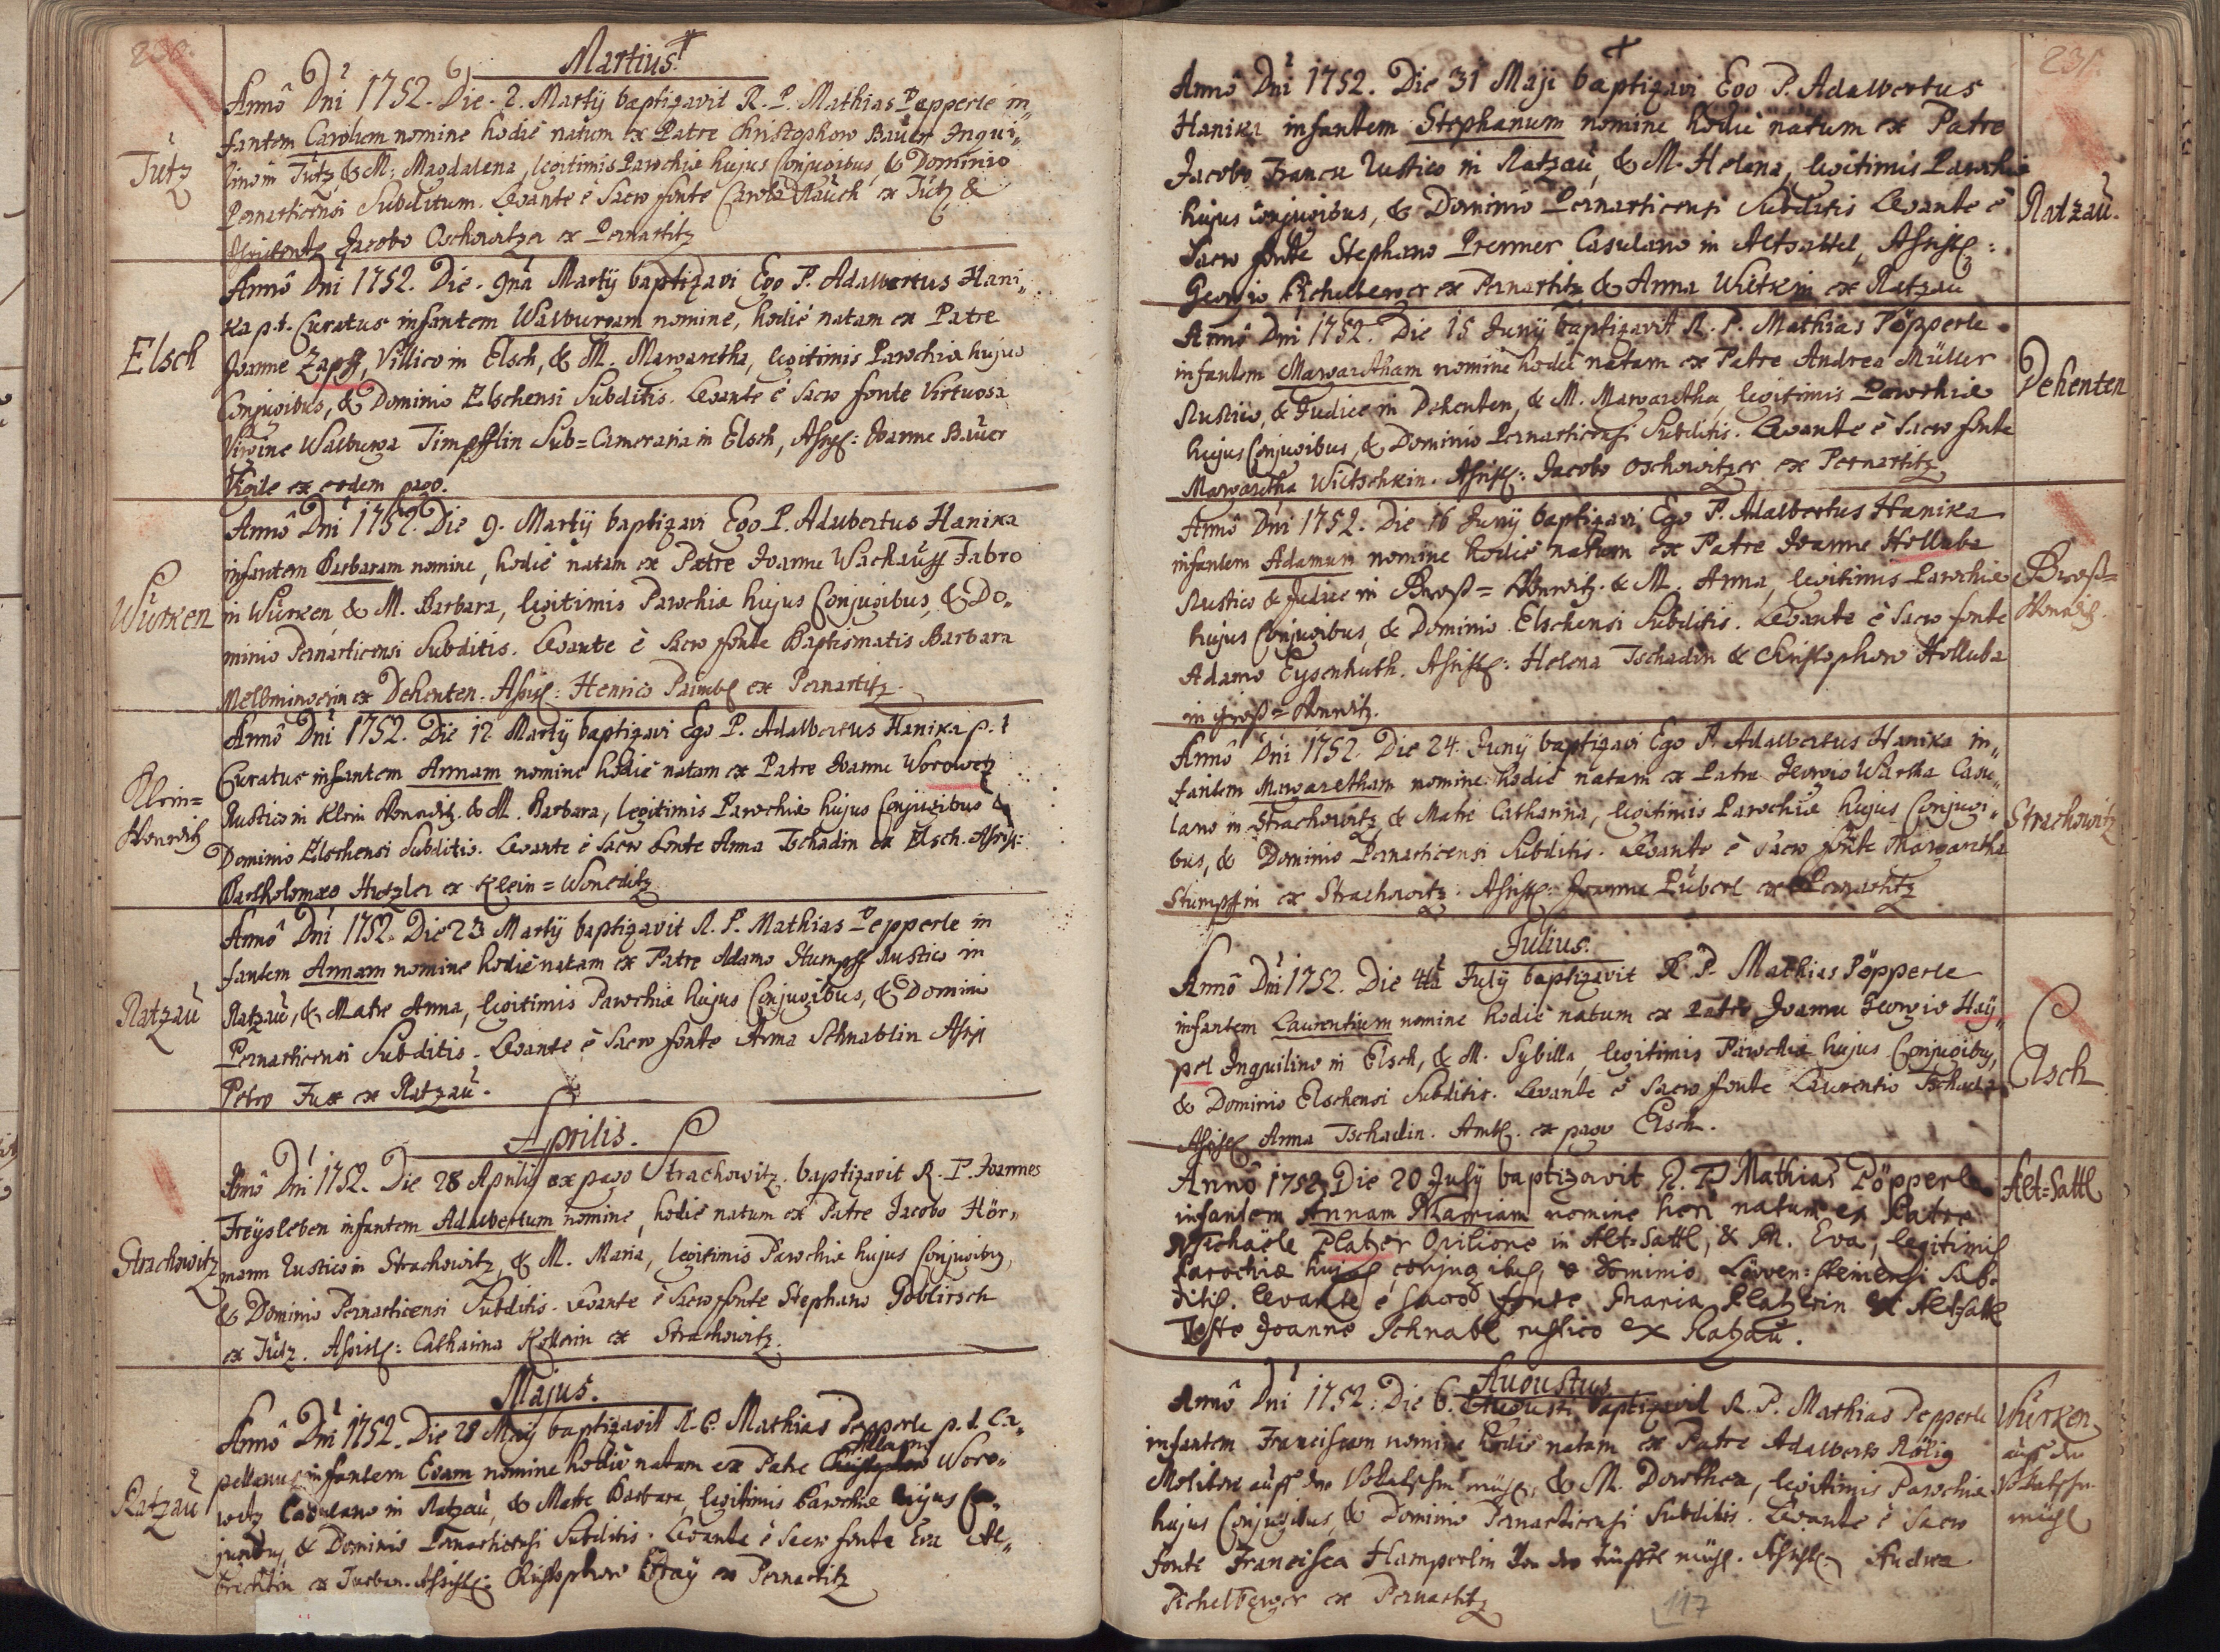 230.
Martius.
Annô Dni 1752. Die. 2. Martij baptizavit R. P. Mathias Pepperle in„
fantem Carolum nomine hodiè natum ex Patre Christophoro Bauer Inqui„
lino in Tütz, & M: Magdalena, legitimis Parochiæ hujus Conjugibus, & Dominio
Pernarticensi Subditum. Levante è Sacro fonte Carolo Rauch ex Tütz, &
Assistente Jacobo Oschowitzer ex Pernartitz
Tütz
Annô Dni 1752. Die. 9na Martij baptizavi Ego P. Adalbertus Hani„
ka p.t. Curatus infantem Walburgam nomine, hodiè natam ex Patre
Joanne Zapff, Villico in Elsch, & M. Margaretha, legitimis Parochiæ hujus
Conjugibus, & Dominio Elschensi Subditis. Levante è Sacro fonte Virtuosa
Virgine Walburga Timpfflin Sub=Cameraria in Elsch, Assist: Joanne Bauer
ex eodem pago.
Elsch
Annô Dni 1752. Die 9. Martij baptizavi Ego P. Adalbertus Hanika
infantem Barbaram nomine, hodiè natam ex Patre Joanne Wackauff Fabro
in Würken, & M. Barbara, legitimis Parochiæ hujus Conjugibus, & Do„
minio Pernarticensi Subditis. Levante è Sacro fonte Baptismatis Barbara
ex Dehenten. Assist: Henrico ex Pernartitz.
Würken
Annô Dni 1752. Die 12 Martij baptizavi Ego P. Adalbertus Hanika p.t
Curatus infantem Annam nomine hodiè natam ex Patre Joanne Worowetz
Rustico in Klein & M. Barbara, legitimis Parochiæ hujus Conjugibus &
Dominio Elschensi Subditis. Levante è Sacro fonte Anna Tschadin ex Elsch. Assist:
Bartholomæo Hutzler ex Klein=Woneditz
Klein=
Annô Dni 1752. Die 23 Martij baptizavit R. P. Mathias Pepperle in
fantem Annam nomine hodiè natam ex Patre Adamo Stumpff Rustico in
Ratzau, & Matre Anna, legitimis Parochiæ hujus Conjugibus, & Dominio
Pernarticensi Subditis. Levante è Sacro fonte Anna Schnablin Assist
Petro Fux ex Ratzau.
Ratzau
Aprilis.
Annô Dni 1752. Die 28 Aprilis ex pago Strachowitz. baptizavit R. P. Joannes
Freysleben infantem Adalbertum nomine, hodiè natum ex Patre Jacobo Hör„
mann Rustico in Strachowitz, & M. Maria, legitimis Parochiæ hujus Conjugibus,
& Dominio Pernarticensi Subditis. Levante è Sacro fonte Stephano Goblirsch
ex Tütz. Assist: Catharina Kollerin ex Strachowitz.
Strachowitz
Majus.
Annô Dni 1752. Die 28 Maij baptizavit R. P. Mathias Pepperle p. t. Ca„
pellanus infantem Evam nomine hodiè natam ex Patre Adamo Woro„
wetz Casulano in Ratzau, & Matre Barbara, legitimis Parochiæ hujus Con„
jugibus, & Dominio Pernarticensi Subditis. Levante è Sacro fonte Eva Al„
brechtin ex Assist: Christophoro ex Pernartitz
Ratzau
231.
Annô Dni 1752. Die 31 Maji baptizavi Ego P. Adalbertus
Hanika infantem Stephanum nomine hodiè natum ex Patre
Jacobo Rustico in Ratzau, & M. Helena, legitimis Parochiæ
hujus Conjugibus, & Dominio Pernarticensi Subditis Levante è
Sacro fonte Stephano Premer Casulano in Altsattel, Assist:
Georgio Pichelberger ex Pernartitz & Anna ex Ratzau
Ratzau.
Annô Dni 1752. Die 15 Junij baptizavit R. P. Mathias Pöpperle
infantem Margaretham nomine hodiè natam ex Patre Andrea Müller
Rustico, & Judice in Dehenten, & M. Margaretha, legitimis Parochiæ
hujus Conjugibus, & Dominio Pernarticensi Subditis. Levante è Sacro fonte
Margaretha Wietschkin. Assist: Jacobo Oschowitzer ex Pernartitz
Dehenten
Annô Dni 1752. Die 16 Junij baptizavi Ego P. Adalbertus Hanika
infantem Adamum nomine hodiè natum ex Patre Joanne Holluba
Rustico & Judice in & M. Anna, legitimis Parochiæ
hujus Conjugibus, & Dominio Elschensi Subditis. Levante è Sacro fonte
Adamo Eysenhuth. Assist: Helena Tschadin & Christophoro Holluba
in
Annô Dni 1752. Die 24. Junij baptizavi Ego P. Adalbertus Hanika in„
fantem Margaretham nomine hodiè natam ex Patre Georgio Wartha Casu„
lano in Strachowitz, & Matre Catharina, legitimis Parochiæ hujus Conjugi„
bus, & Dominio Pernarticensi Subditis. Levante è Sacro fonte Margaretha
Stumpffin ex Strachowitz. Assist: Joanne Püberl ex Pernartitz
Strachowitz
Julius.
Annô Dni 1752. Die 4ta July baptizavit R. P. Mathias Pöpperle
infantem Laurentium nomine hodiè natum ex Patre Joanne Georgio Haÿ„
pel Inquilino in Elsch, & M. Sybilla, legitimis Parochiæ hujus Conjugibus,
& Dominio Elschensi Subditis. Levante è Sacro fonte Laurentio
Assist Anna Tschadin. Amb. ex pago Elsch.
Elsch
Annô 1752 Die 20 July baptizavit R. P. Mathias Pöpperle
infantem Annam Mariam nomine heri natum ex Patre
Michaële Platzer Opilione in Alt=Sattl, & M. Eva, legitimis
Parochiæ hujus conjugibus, & Dominio Löwen=steinensi Sub-
ditis. levante è sacro fonte Maria Platzerin ex Alt=Sattl
Teste Joanne Schnabl rustico ex Ratzau.
Alt=Sattl
Augustus
Annô Dni 1752. Die 6. Augusti baptizavit R. P. Mathias Pepperle
infantem Franciscam nomine hodiè natam ex Patre Adalberto Rölig
Molitore auff der & M. Dorothea, legitimis Parochiæ
hujus Conjugibus, & Dominio Pernarticensi Subditis. Levante è Sacro
fonte Francisca Hamperlin Von der mühl. Assist: Andrea
Pichelberger ex Pernartitz
Würken
auff der
mühl
117